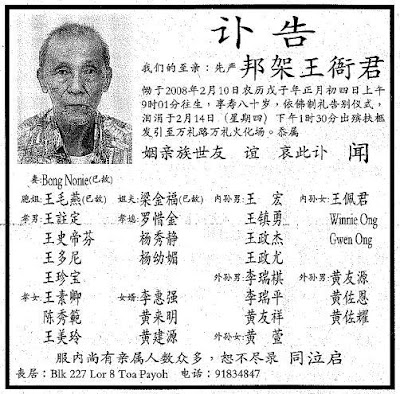 讣告
我们的至亲：先严 邦架王衙君
恸于2008年2月10日农历戊子年正月初四日上午
9时01分往生，享寿八十岁，依佛制礼告别仪式，
泪涓于2月14日（星期四）下午1时30分出殡扶柩
发引至万礼路万礼火化场。忝属
姻亲族世友 谊 哀此讣 闻
妻:Bong Nonie(已故)
胞姐:王毛燕(已故) 姐夫:梁金福(已故) 内孙男:王 宏 内孙女:王佩君
孝男:王註定 孝媳:罗惜金 王镇勇 Winnie Ong
王史帝芬 杨秀静 王政杰 Gwen Ong
王多尼 杨幼媚 王政尤
王珍宝 外孙男:李瑞棋 外孙男:黄友源
孝女:王素卿 女婿:李惠强 李瑞平 黄佐恩
陈秀範 黄来明 黄友祥 黄佐耀
王美玲 黄建源 外孙女:黄 萱
服内尚有亲属人数众多，恕不尽录 同泣启
丧居：Blk 227 Lor 8 Toa Payoh 电话：91834847